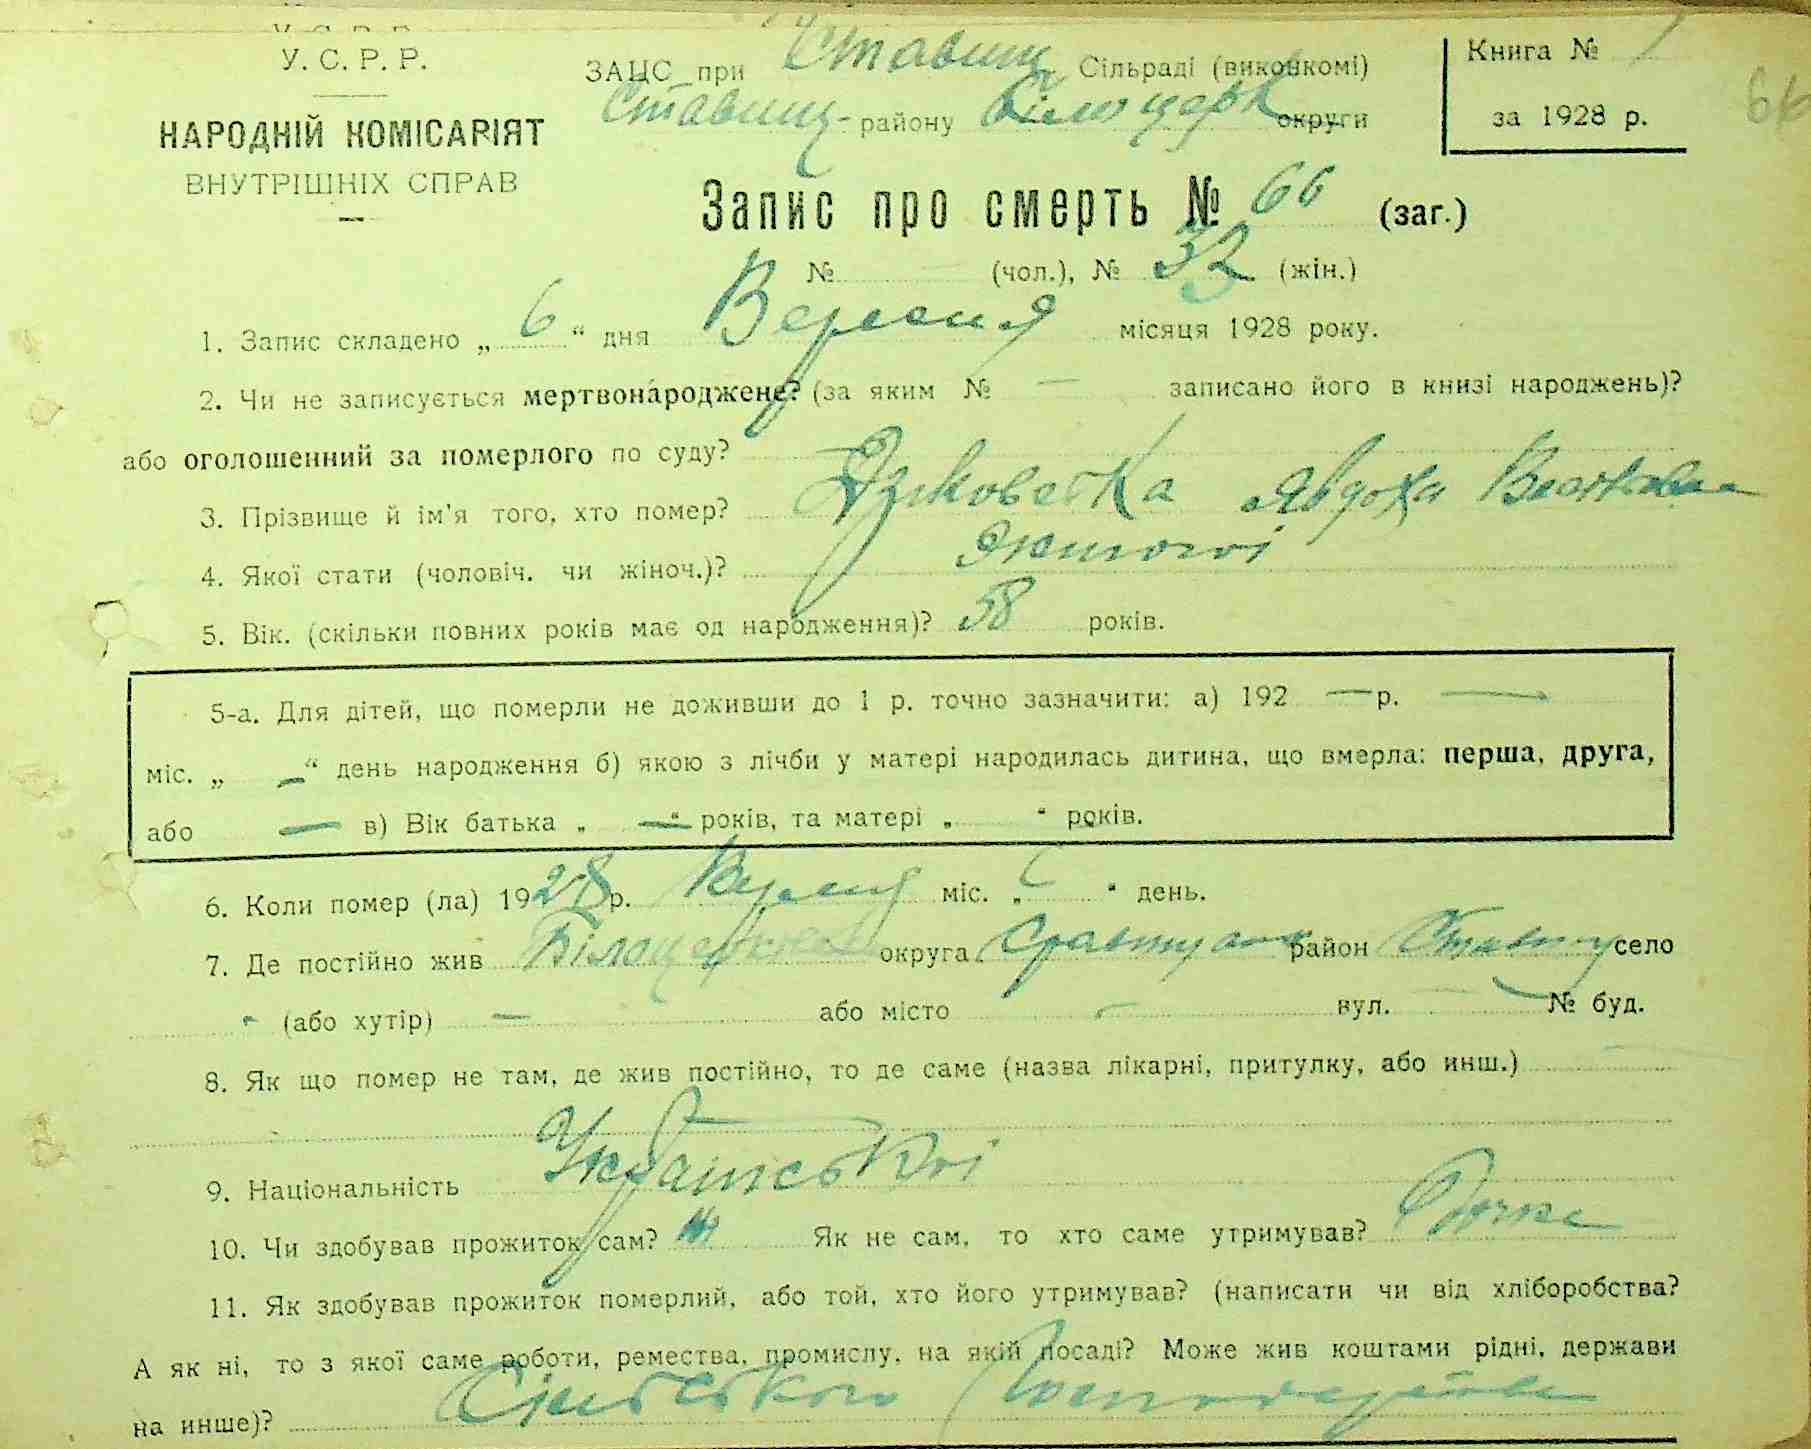 У. С. Р. Р.
НАРОДНІЙ КОМІСАРІЯТ
ВНУТРІШНІХ СПРАВ
ЗАЦС при Ставищ Сільраді (виконкомі)
Ставищ- району Білоцерк округи
Книга № 1
за 1928 р.
66
Запис про смерть № 66 (заг.)
№ (чол.), № 32 (жін.)
1. Запис складено „ 6 “ дня Вересня місяця 1928 року.
2. Чи не записується мертвонароджене? (за яким № — записано його в книзі народжень)?
або оголошенний за померлого по суду?
3. Прізвище й ім'я того, хто помер? Явдоха
4. Якої стати (чоловіч. чи жіноч.)? Жіночої
5. Вік. (скільки повних років має од народження)? 58 років.
5-а. Для дітей, що померли не доживши до 1 р. точно зазначити: а) 192 — р. —
міс. „ — “ день народження б) якою з лічби у матері народилась дитина, що вмерла: перша, друга,
або — в) Вік батька „ — “ років, та матері „ “ років.
6. Коли помер (ла) 1928 р. Вересня міс. „ “ день.
7. Де постійно жив округа район село
(або хутір) — або місто — вул. — № буд.
8. Як що помер не там, де жив постійно, то де саме (назва лікарні, притулку, або инш.)
9. Національність Української
10. Чи здобував прожиток сам? Як не сам, то хто саме утримував?
11. Як здобував прожиток померлий, або той, хто його утримував? (написати чи від хліборобства?
А як ні, то з якої саме роботи, ремества, промислу, на якій посаді? Може жив коштами рідні, держави
на инше)? Сільського Господарства